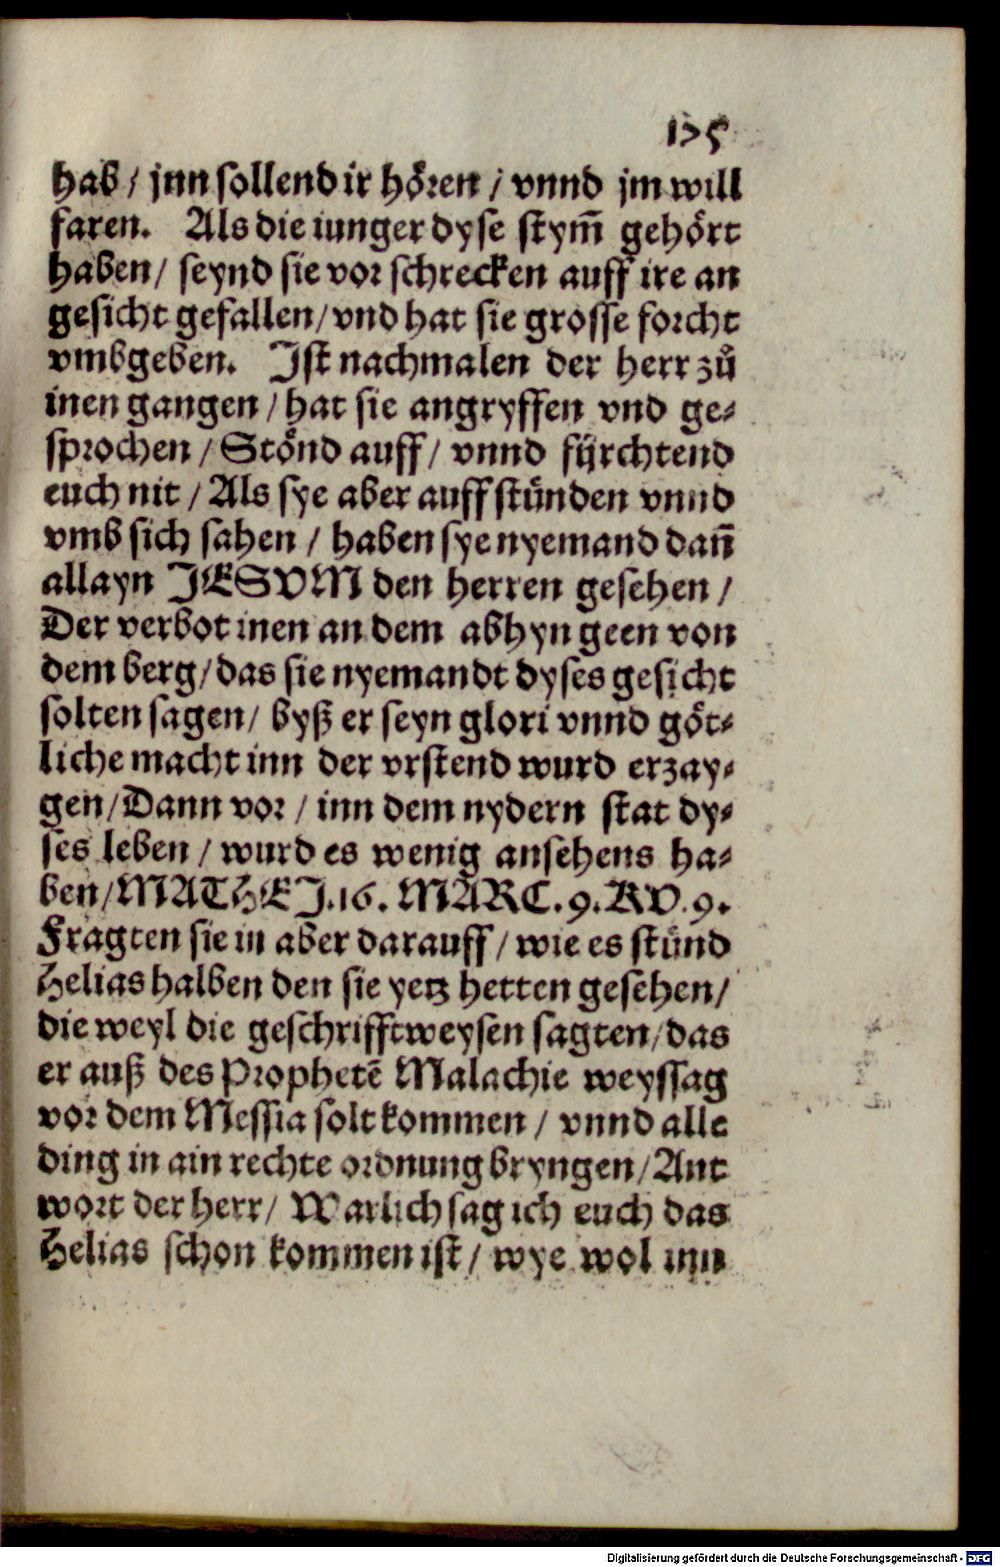 175
hab / jnn sollend ir hoͤren / vnnd jm will
faren. Als die iunger dyse stym̄ gehoͤrt
haben / seynd sie vor schrecken auff ire an
gesicht gefallen / vnd hat sie grosse forcht
vmbgeben. Ist nachmalen der herr zuͦ
inen gangen / hat sie angryffen vnd ge⸗
sprochen / Stoͤnd auff / vnnd fürchtend
euch nit / Als sye aber auff stuͤnden vnnd
vmb sich sahen / haben sye nyemand dan̄
allayn JESVM den herren gesehen /
Der verbot inen an dem abhyn geen von
dem berg / das sie nyemandt dyses gesicht
solten sagen / byß er seyn glori vnnd goͤt⸗
liche macht inn der vrstend wurd erzay⸗
gen / Dann vor / inn dem nydern stat dy⸗
ses leben / wurd es wenig ansehens ha⸗
ben / MATHEJ. 16. MARC. 9. LV. 9.
Fragten sie in aber darauff / wie es stuͤnd
Helias halben den sie yetz hetten gesehen /
die weyl die geschrifftweysen sagten / das
er auß des Prophetē Malachie weyssag
vor dem Messia solt kommen / vnnd alle
ding in ain rechte ordnung bryngen / Ant
wort der herr / Warlich sag ich euch das
Helias schon kommen ist / wye wol inn
Digitalisierung gefördert durch die Deutsche Forschungsgemeinschaft - DFG